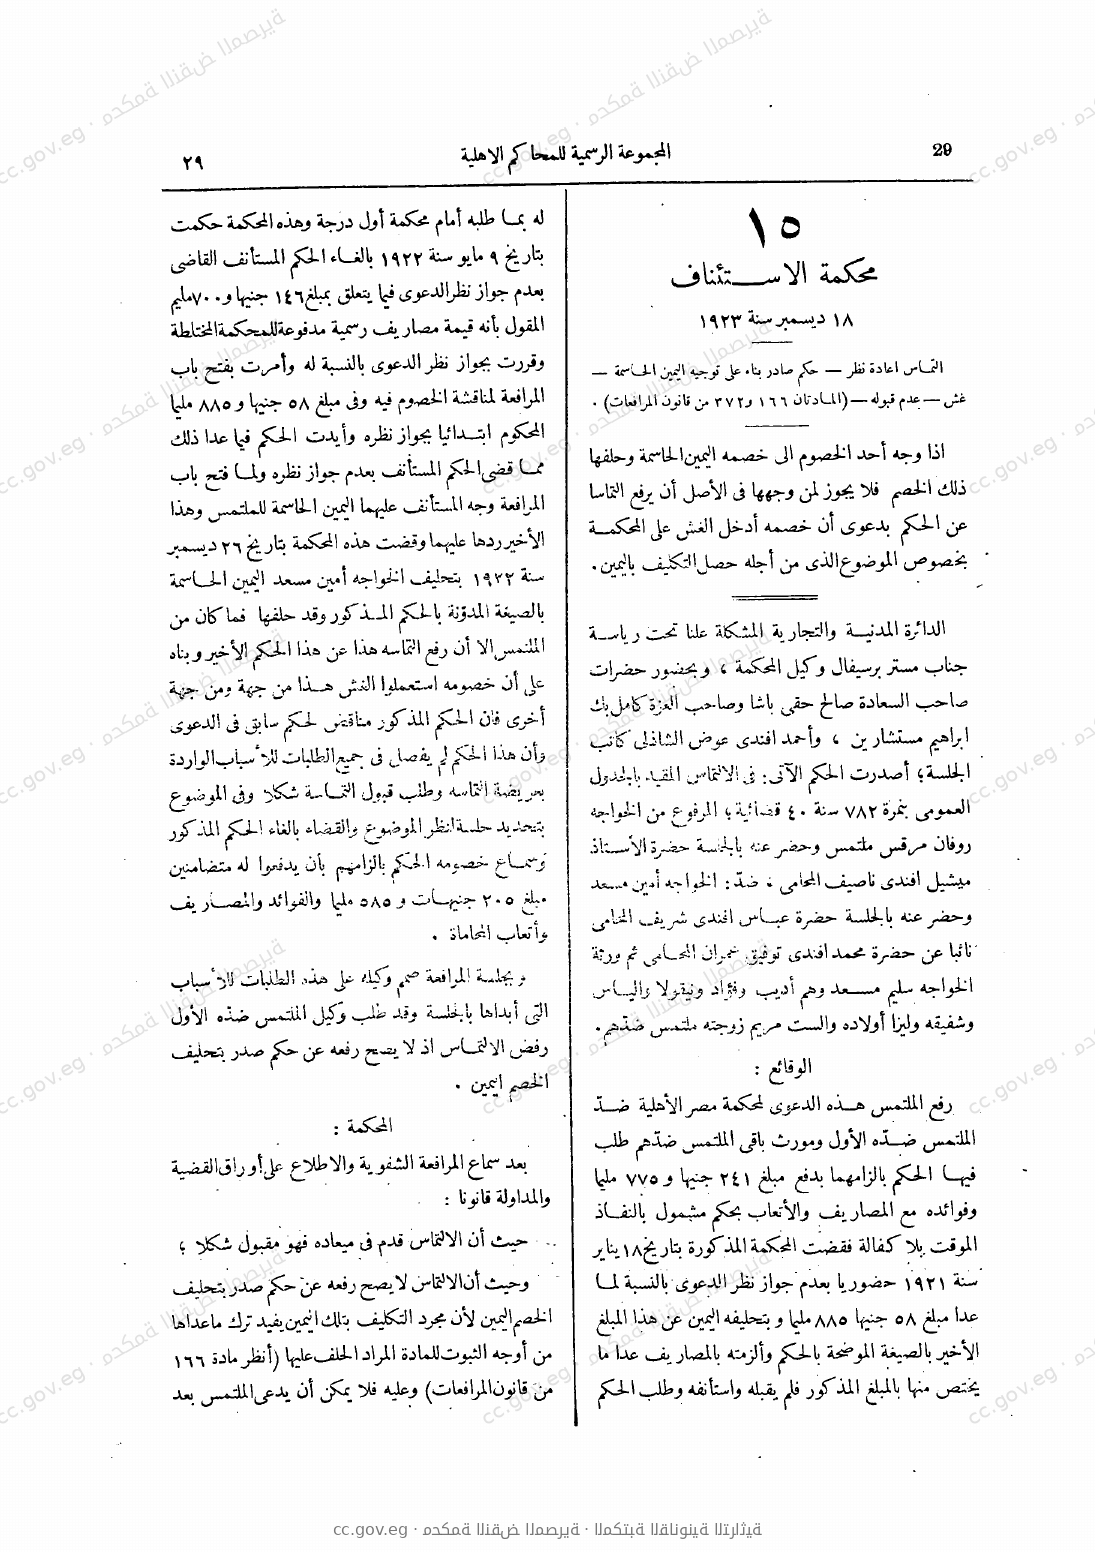 29
المجموعة الرسمية للمحاكم الاهلية
٢٩
١٥
محكمة الاستئناف
١٨ ديسمبر سنة ١٩٢٣
التماس اعادة نظر — حكم صادر بناء على توجيه اليمين الحاسمة —
غش — عدم قبوله — (المادتان ١٦٦ و٣٧٢ من قانون المرافعات) .
اذا وجه أحد الخصوم الى خصمه اليمين الحاسمة وحلفها
ذلك الخصم فلا يجوز لمن وجهها فى الأصل أن يرفع التماسا
عن الحكم بدعوى أن خصمه أدخل الغش على المحكمة
بخصوص الموضوع الذى من أجله حصل التكليف باليمين .
الدائرة المدنية والتجارية المشكلة علنا تحت رياسة
جناب مستر برسيفال وكيل المحكمة ، وبحضور حضرات
صاحب السعادة صالح حقى باشا وصاحب العزة كامل بك
ابراهيم مستشارين ، وأحمد افندى عوض الشاذلى كاتب
الجلسة ؛ أصدرت الحكم الآتى : فى الالتماس المقيد بالجدول
العمومى بنمرة ٧٨٢ سنة ٤٠ قضائية ؛ المرفوع من الخواجه
روفان مرقس ملتمس وحضر عنه بالجلسة حضرة الأستاذ
ميشيل افندى ناصيف المحامى ، ضدّ : الخواجه أمين مسعد
وحضر عنه بالجلسة حضرة عباس افندى شريف المحامى
نائبا عن حضرة محمد افندى توفيق عمران المحامى ثم ورثة
الخواجه سليم مسعد وهم أديب وفؤاد ونيقولا والياس
وشفيقه وليزا أولاده والست مريم زوجته ملتمس ضدّهم .
الوقائع :
رفع الملتمس هذه الدعوى لمحكمة مصر الأهلية ضدّ
الملتمس ضدّه الأول ومورث باقى الملتمس ضدّهم طلب
فيها الحكم بالزامهما بدفع مبلغ ٢٤١ جنيها و٧٧٥ مليما
وفوائده مع المصاريف والأتعاب بحكم مشمول بالنفاذ
الموقت بلا كفالة فقضت المحكمة المذكورة بتاريخ ١٨ يناير
سنة ١٩٢١ حضوريا بعدم جواز نظر الدعوى بالنسبة لما
عدا مبلغ ٥٨ جنيها ٨٨٥ مليما وبتحليفه اليمين عن هذا المبلغ
الأخير بالصيغة الموضحة بالحكم وألزمته بالمصاريف عدا ما
يختص منها بالمبلغ المذكور فلم يقبله واستأنفه وطلب الحكم
له بما طلبه أمام محكمة أول درجة وهذه المحكمة حكمت
بتاريخ ٩ مايو سنة ١٩٢٢ بالغاء الحكم المستأنف القاضى
بعدم جواز نظر الدعوى فيما يتعلق بمبلغ ١٤٦ جنيها و٧٠٠ مليم
المقول بأنه قيمة مصاريف رسمية مدفوعة للمحكمة المختلطة
وقررت بجواز نظر الدعوى بالنسبة له وأمرت بفتح باب
المرافعة لمناقشة الخصوم فيه وفى مبلغ ٥٨ جنيها و٨٨٥ مليما
المحكوم ابتدائيا بجواز نظره وأيدت الحكم فيما عدا ذلك
مما قضى الحكم المستأنف بعدم جواز نظره ولما فتح باب
المرافعة وجه المستأنف عليهما اليمين الحاسمة للملتمس وهذا
الأخير ردها عليهما وقضت هذه المحكمة بتاريخ ٢٦ ديسمبر
سنة ١٩٢٢ بتحليف الخواجه أمين مسعد اليمين الحاسمة
بالصيغة المدوّنة بالحكم المذكور وقد حلفها فما كان من
الملتمس الا أن رفع التماسه هذا عن هذا الحكم الأخير وبناه
على أن خصومه استعملوا الغش هذا من جهة ومن جهة
أخرى فان الحكم المذكور مناقض لحكم سابق فى الدعوى
وأن هذا الحكم لم يفصل فى جميع الطلبات للأسباب الواردة
بعريضة التماسه وطلب قبول التماسه شكلا وفى الموضوع
بتحديد جلسة لنظر الموضوع والقضاء بالغاء الحكم المذكور
وسماع خصومه الحكم بالزامهم بأن يدفعوا له متضامنين
مبلغ ٢٠٥ جنيهات و٥٨٥ مليما والفوائد والمصاريف
وأتعاب المحاماة .
وبجلسة المرافعة صمم وكيله على هذه الطلبات للأسباب
التى أبداها بالجلسة وقد طلب وكيل الملتمس ضدّه الأول
رفض الالتماس اذ لا يصح رفعه عن حكم صدر بتحليف
الخصم اليمين .
المحكمة :
بعد سماع المرافعة الشفوية والاطلاع على أوراق القضية
والمداولة قانونا :
حيث أن الالتماس قدم فى ميعاده فهو مقبول شكلا ؛
وحيث أن الالتماس لا يصح رفعه عن حكم صدر بتحليف
الخصم اليمين لأن مجرد التكليف بتلك اليمين يفيد ترك ما عداها
من أوجه الثبوت للمادة المراد الحلف عليها (أنظر مادة ١٦٦
من قانون المرافعات) وعليه فلا يمكن أن يدعى الملتمس بعد
cc.gov.eg · محكمة النقض المصرية · المكتبة القانونية التراثية